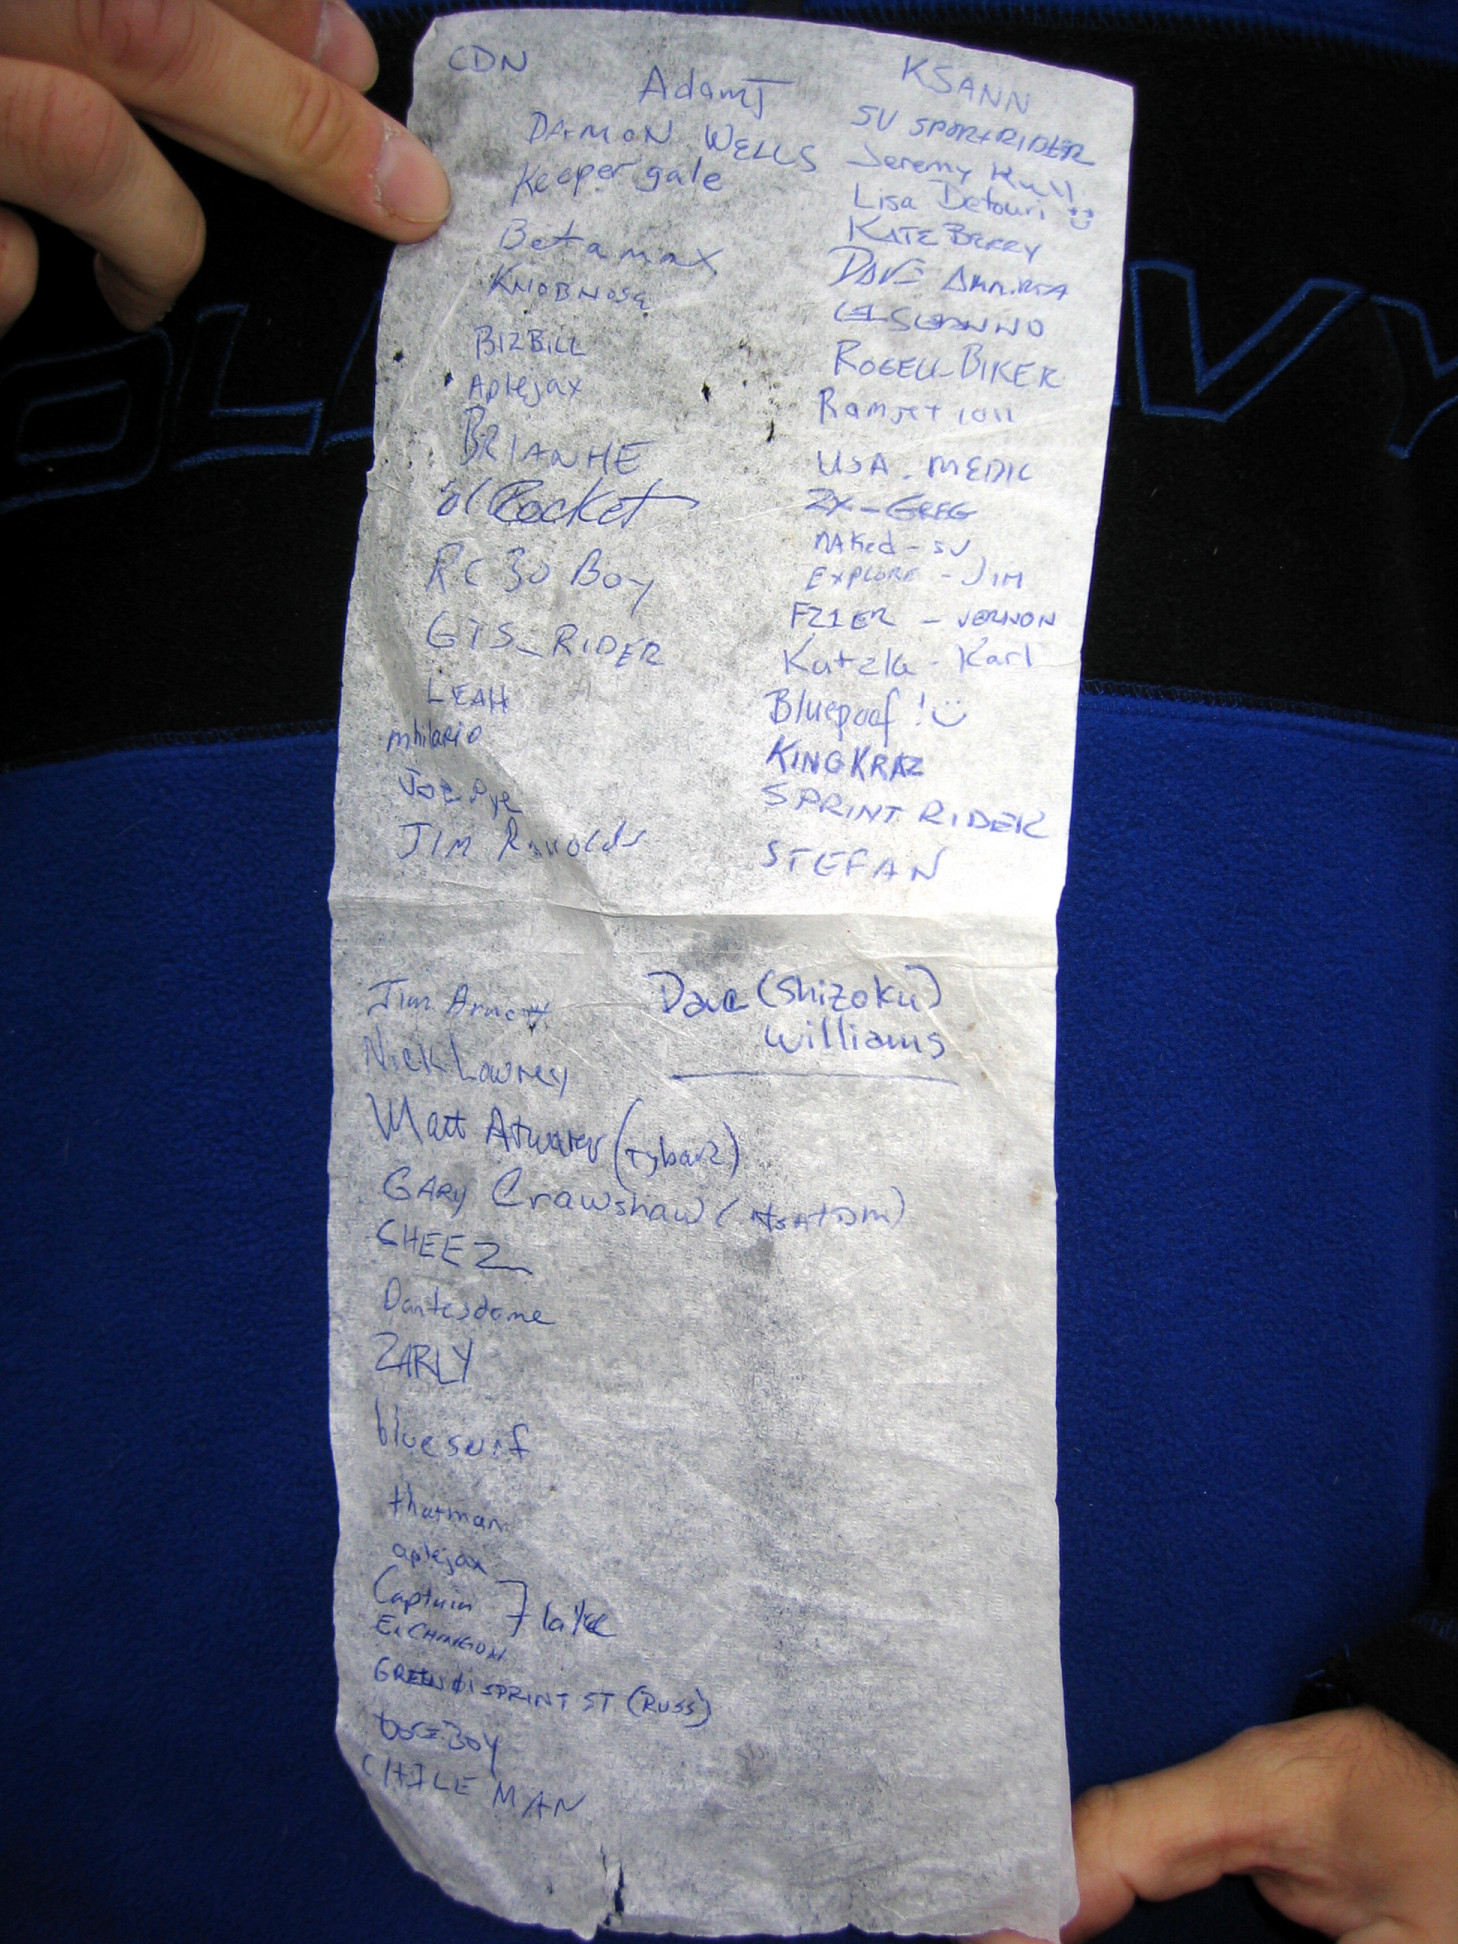 CDN
AdamJ
DAMON WELLS
Keepergale
Betamax
KNOBNOSE
BIZBILL
Aplejax
BRIANHE
ol Rocket
RC30 Boy
GTS_RIDER
LEAH
mhilario
Joe Pye
JIM
KSANN
SV SPORTRIDER
Jeremy Kull
Lisa Detouri
KATE BERRY
DAVE
ROGELL_BIKER
Ramjet 1011
USA. MEDIC
ZX_GREG
NAKed-SV
EXPLORE-JIM
FZ1ER - VERNON
Kutzla - Karl
Bluepoof!
KINGKRAZ
SPRINT RIDER
STEFAN
Jim Arnett
Nick Lowrey
Matt Atwater (Tybar2)
GARY Crawshaw
CHEEZ
Dantesdame
ZARLY
blue surf
thatman
aplejax
Captain
EL CHINGON
GREEN 01 SPRINT ST (RUSS)
CHILE MAN
Dave (Shizoku)
Williams